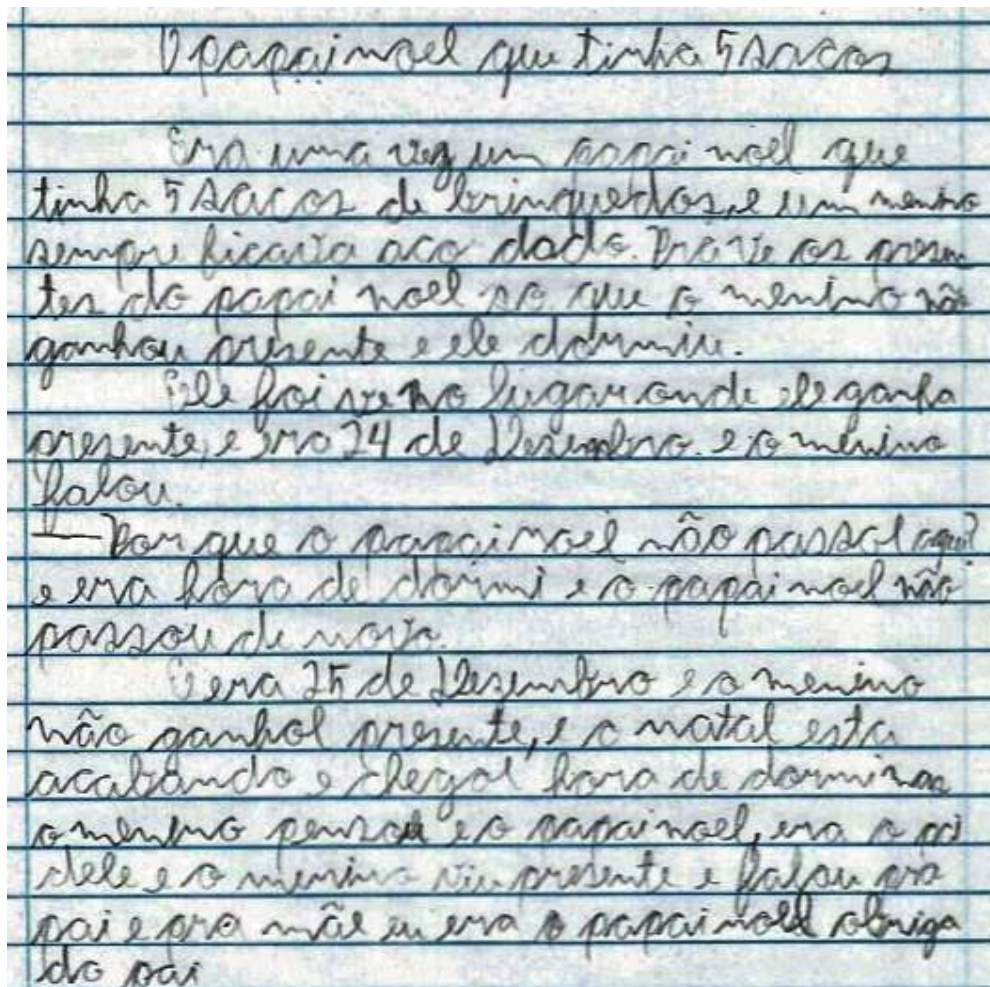 O papai noel que tinha 5 sacos
Era uma vez um papai noel que
tinha 5 sacos de brinquedos, e um menino
sempre ficava aco dado. Pra ve os presen
tes do papai noel so que o menino não
ganhou presente e ele dormiu.
Ele foi ve no lugar onde ele ganha
presente, e era 24 de Desembro. e o menino
falou.
— Por que o papai noel não passol aqui?
e era hora de dormi e o papai noel não
passou de novo.
E era 25 de Desembro e o menino
não ganhol presente, e o natal esta
acabando e chegol hora de dormir
o menino pensou e o papai noel, era o pai
dele e o menino viu presente e falou pro
pai e pra mãe eu era o papai noel obriga
do pai